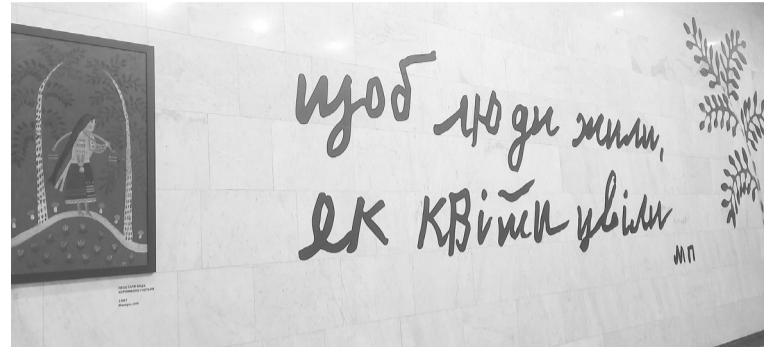 щоб люди жили,
як квіти цвіли
МП